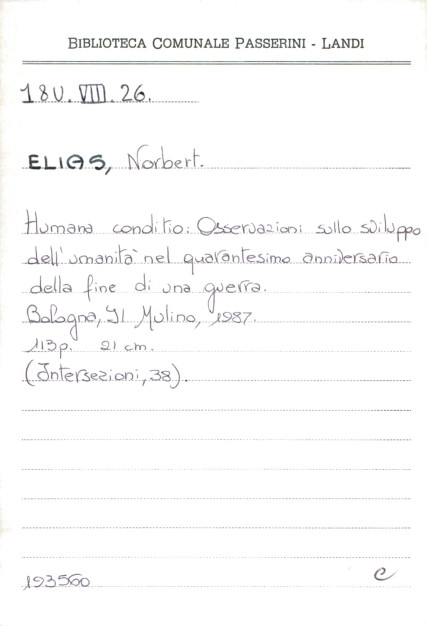 BIBLIOTECA COMUNALE PASSERINI - LANDI
18U. VIII. 26.
ELIAS, Norbert.
Humana conditio: Osservazioni sullo sviluppo
dell'umanità nel quarantesimo anniversario
della fine di una guerra.
Bologna, Il Mulino, 1987.
113p. 21 cm.
(Intersezioni, 38).
193560
C